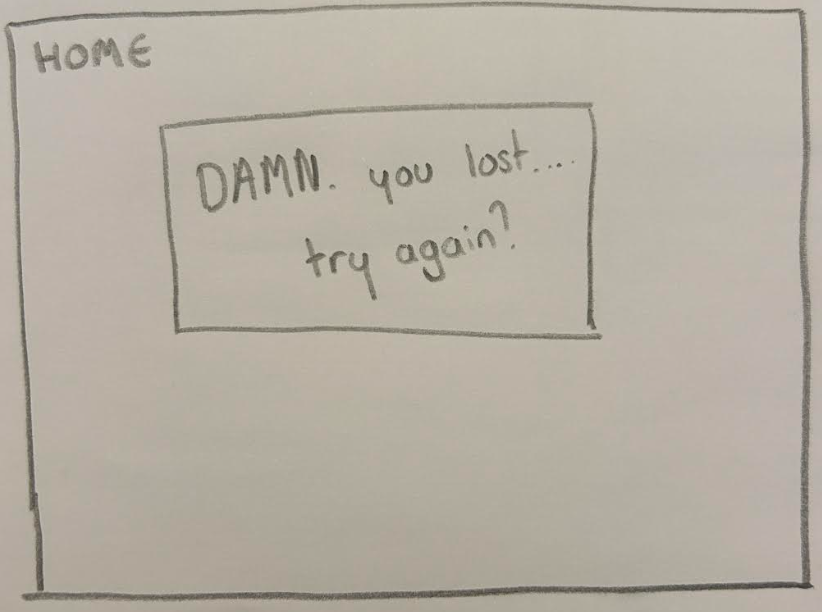 HOME
DAMN. you lost....
try again?